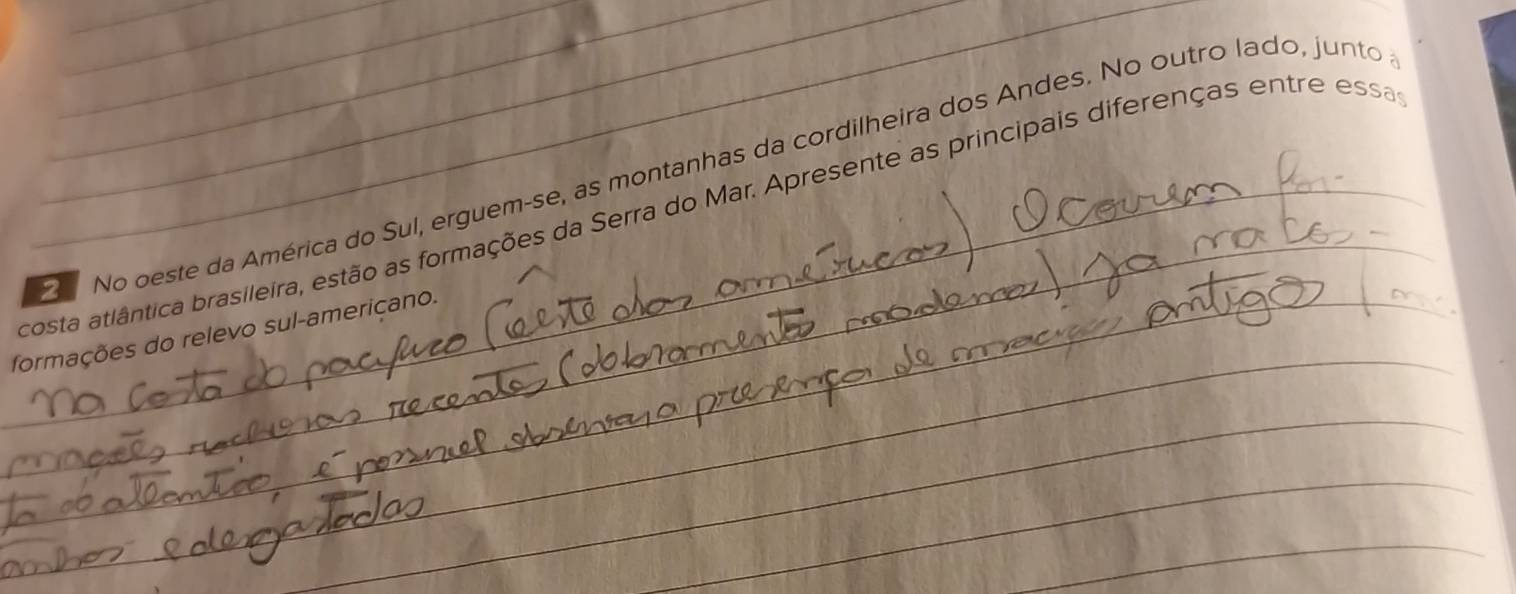 2 No oeste da América do Sul, erguem-se, as montanhas da cordilheira dos Andes. No outro lado, junto à
costa atlântica brasileira, estão as formações da Serra do Mar. Apresente as principais diferenças entre essas
formações do relevo sul-americano.
Na costa do pacifico (oeste das américas) Ocorrem For-
mações rochosas recentes (dobramentos modernos) Ja na cos-
ta do atlantico, é possivel observar a presença de maciços antigos
e desgastadas